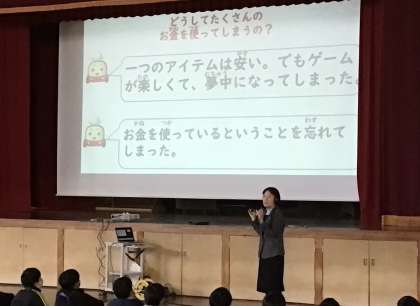 どうしてたくさんの
お金を使ってしまうの？
一つのアイテムは安い。でもゲーム
が楽しくて、夢中になってしまった。
お金を使っているということを忘れて
しまった。